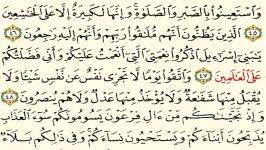 وَٱسْتَعِينُوا۟ بِٱلصَّبْرِ وَٱلصَّلَوٰةِ وَإِنَّهَا لَكَبِيرَةٌ إِلَّا عَلَى ٱلْخَٰشِعِينَ
٤٥ ٱلَّذِينَ يَظُنُّونَ أَنَّهُم مُّلَٰقُوا۟ رَبِّهِمْ وَأَنَّهُمْ إِلَيْهِ رَٰجِعُونَ ٤٦
يَٰبَنِىٓ إِسْرَٰٓءِيلَ ٱذْكُرُوا۟ نِعْمَتِىَ ٱلَّتِىٓ أَنْعَمْتُ عَلَيْكُمْ وَأَنِّى فَضَّلْتُكُمْ
عَلَى ٱلْعَٰلَمِينَ ٤٧ وَٱتَّقُوا۟ يَوْمًا لَّا تَجْزِى نَفْسٌ عَن نَّفْسٍ شَيْـًٔا وَلَا
يُقْبَلُ مِنْهَا شَفَٰعَةٌ وَلَا يُؤْخَذُ مِنْهَا عَدْلٌ وَلَا هُمْ يُنصَرُونَ
٤٨ وَإِذْ نَجَّيْنَٰكُم مِّنْ ءَالِ فِرْعَوْنَ يَسُومُونَكُمْ سُوٓءَ ٱلْعَذَابِ
يُذَبِّحُونَ أَبْنَآءَكُمْ وَيَسْتَحْيُونَ نِسَآءَكُمْ وَفِى ذَٰلِكُم بَلَآءٌ